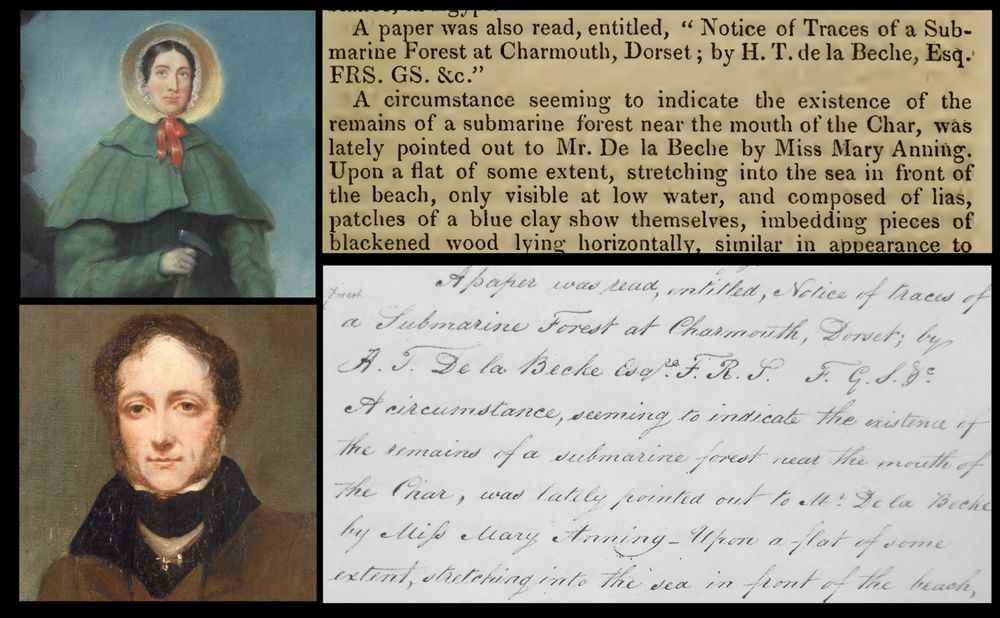 A paper was also read, entitled, “ Notice of Traces of a Sub-
marine Forest at Charmouth, Dorset ; by H. T. de la Beche, Esq.
FRS. GS. &c.”
A circumstance seeming to indicate the existence of the
remains of a submarine forest near the mouth of the Char, was
lately pointed out to Mr. De la Beche by Miss Mary Anning.
Upon a flat of some extent, stretching into the sea in front of
the beach, only visible at low water, and composed of lias,
patches of a blue clay show themselves, imbedding pieces of
blackened wood lying horizontally, similar in appearance to
Forest
A paper was read, entitled, Notice of traces of
a Submarine Forest at Charmouth, Dorset; by
H. T. De la Beche Esqre. F. R. S. F. G. S. &c.
A circumstance, seeming to indicate the existence of
the remains of a submarine forest near the mouth of
the Char, was lately pointed out to Mr. De la Beche
by Miſs Mary Anning – Upon a flat of some
extent, stretching into the sea in front of the beach,